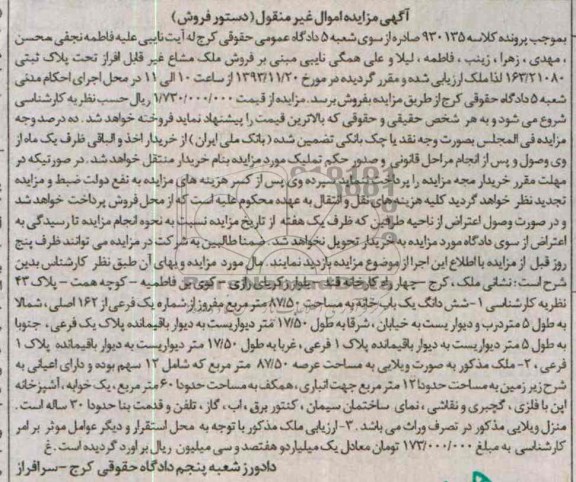 آگهی مزایده اموال غیر منقول (دستور فروش)
بموجب پرونده کلاسه ۹۳۰۱۳۵ صادره از سوی شعبه ۵ دادگاه عمومی حقوقی کرج له آیت نایبی علیه فاطمه نجفی، محسن
، مهدی، زهرا، زینب، فاطمه، لیلا و علی همگی نایبی مبنی بر فروش ملک مشاع غیر قابل افراز تحت پلاک ثبتی
۱۶۳/۲۱۰۸۰ لذا ملک ارزیابی شده و مقرر گردیده در مورخ ۱۳۹۳/۱۱/۲۰ از ساعت ۱۰ الی ۱۱ در محل اجرای احکام مدنی
شعبه ۵ دادگاه حقوقی کرج از طریق مزایده بفروش برسد. مزایده از قیمت ۱/۷۳۰/۰۰۰/۰۰۰ ریال حسب نظریه کارشناسی
شروع می شود و به هر شخص حقیقی و حقوقی که بالاترین قیمت را پیشنهاد نماید فروخته خواهد شد. ده درصد وجه
مزایده فی المجلس بصورت وجه نقد یا چک بانکی تضمین شده (بانک ملی ایران) از خریدار اخذ و الباقی ظرف یک ماه از
وی وصول و پس از انجام مراحل قانونی و صدور حکم تملیک مورد مزایده بنام خریدار منتقل خواهد شد. در صورتیکه در
مهلت مقرر خریدار مجه مزایده را پرداخت سپرده وی پس از کسر هزینه های مزایده به نفع دولت ضبط و مزایده
تجدید نظر خواهد گردید کلیه هزینه های نقل و انتقال به عهده محکوم علیه است که از محل فروش پرداخت خواهد شد
و در صورت وصول اعتراض از ناحیه طرفین که ظرف یک هفته از تاریخ مزایده نسبت به نحوه انجام مزایده تا رسیدگی به
اعتراض از سوی دادگاه مورد مزایده به خریدار تحویل نخواهد شد. ضمنا طالبین به شرکت در مزایده می توانند ظرف پنج
روز قبل از مزایده با اطلاع این اجرا از موضوع مزایده بازدید نمایند. مال مورد مزایده و بهای آن طبق نظر کارشناس بدین
شرح است: نشانی ملک، کرج - چهار راه کارخانه قند - بلوار - کوی فاطمیه - کوچه همت - پلاک ۴۳
نظریه کارشناسی ۱- شش دانگ یک باب خانه به مساحت ۸۷/۵۰ متر مربع مفروز از شماره یک فرعی از ۱۶۲ اصلی، شمالا
به طول ۵ متر درب و دیواریست به خیابان، شرقا به طول ۱۷/۵۰ متر دیواریست به دیوار باقیمانده پلاک یک فرعی، جنوبا
به طول ۵ متر دیواریست به دیوار باقیمانده پلاک ۱ فرعی، غربا به طول ۱۷/۵۰ متر دیواریست به دیوار باقیمانده پلاک ۱
فرعی، ۲- ملک مذکور به صورت ویلایی به مساحت عرصه ۸۷/۵۰ متر مربع که شامل ۱۲ سهم بوده و دارای اعیانی به
شرح زیر زمین به مساحت حدودا ۱۲ متر مربع جهت انباری، همکف به مساحت حدودا ۶۰ متر مربع، یک خوابه، آشپزخانه
اپن با فلزی، گچبری و نقاشی، نمای ساختمان سیمان، کنتور برق، آب، گاز، تلفن و قدمت بنا حدودا ۳۰ ساله است.
منزل ویلایی مذکور در تصرف وراث می باشد. ۳- ارزیابی ملک مذکور با توجه به محل استقرار و دیگر عوامل موثر بر امر
کارشناسی به مبلغ ۱۷۳/۰۰۰/۰۰۰ تومان معادل یک میلیارد و هفتصد و سی میلیون ریال برآورد گردیده است. غ
دادورز شعبه پنجم دادگاه حقوقی کرج - سرافراز